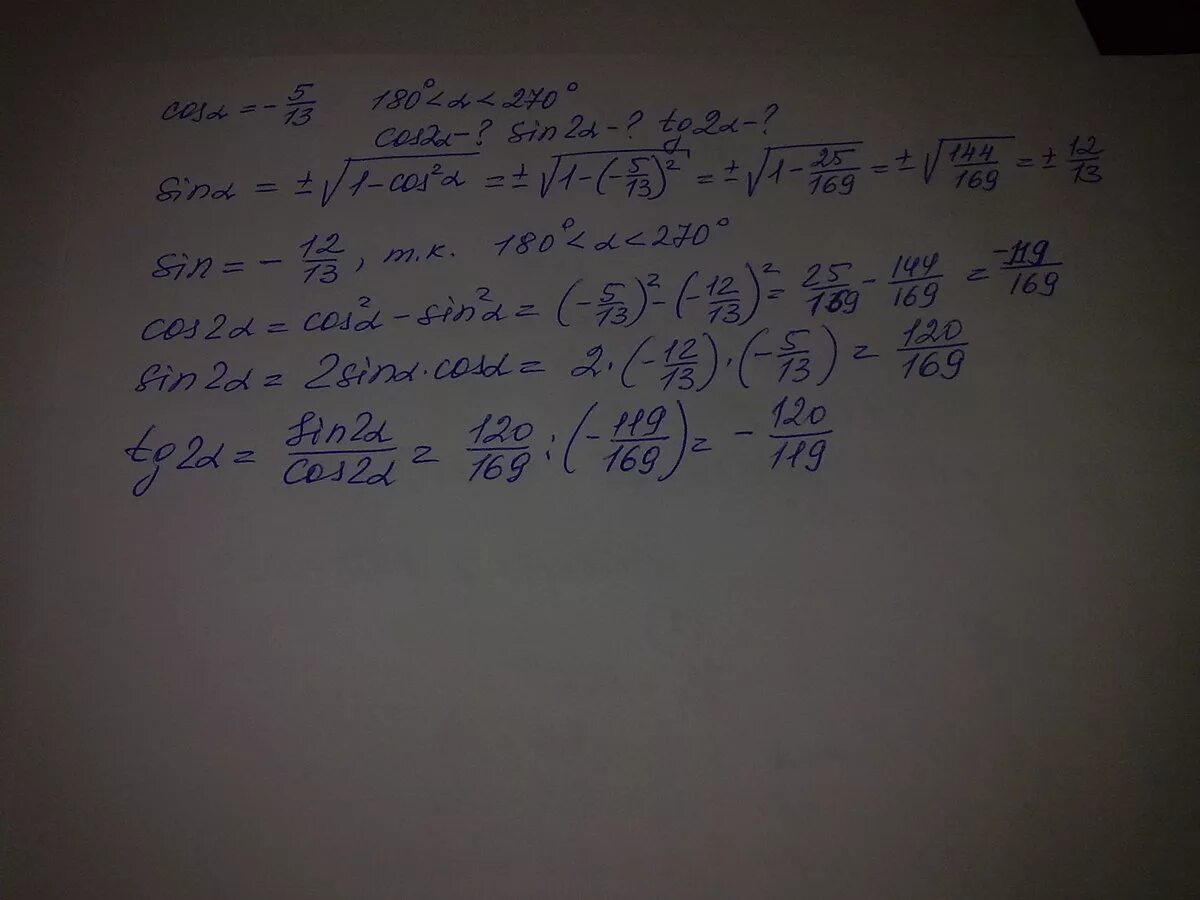 cosα = -5/13 180° < α < 270°
cos2α-? sin2α-? tg2α-?
sinα = ±√(1-cos²α) = ±√(1-(-5/13)²) = ±√(1-25/169) = ±√(144/169) = ±12/13
sin = -12/13, т.к. 180° < α < 270°
cos2α = cos²α - sin²α = (-5/13)² - (-12/13)² = 25/169 - 144/169 = -119/169
sin2α = 2sinα·cosα = 2·(-12/13)·(-5/13) = 120/169
tg2α = sin2α/cos2α = 120/169 : (-119/169) = -120/119